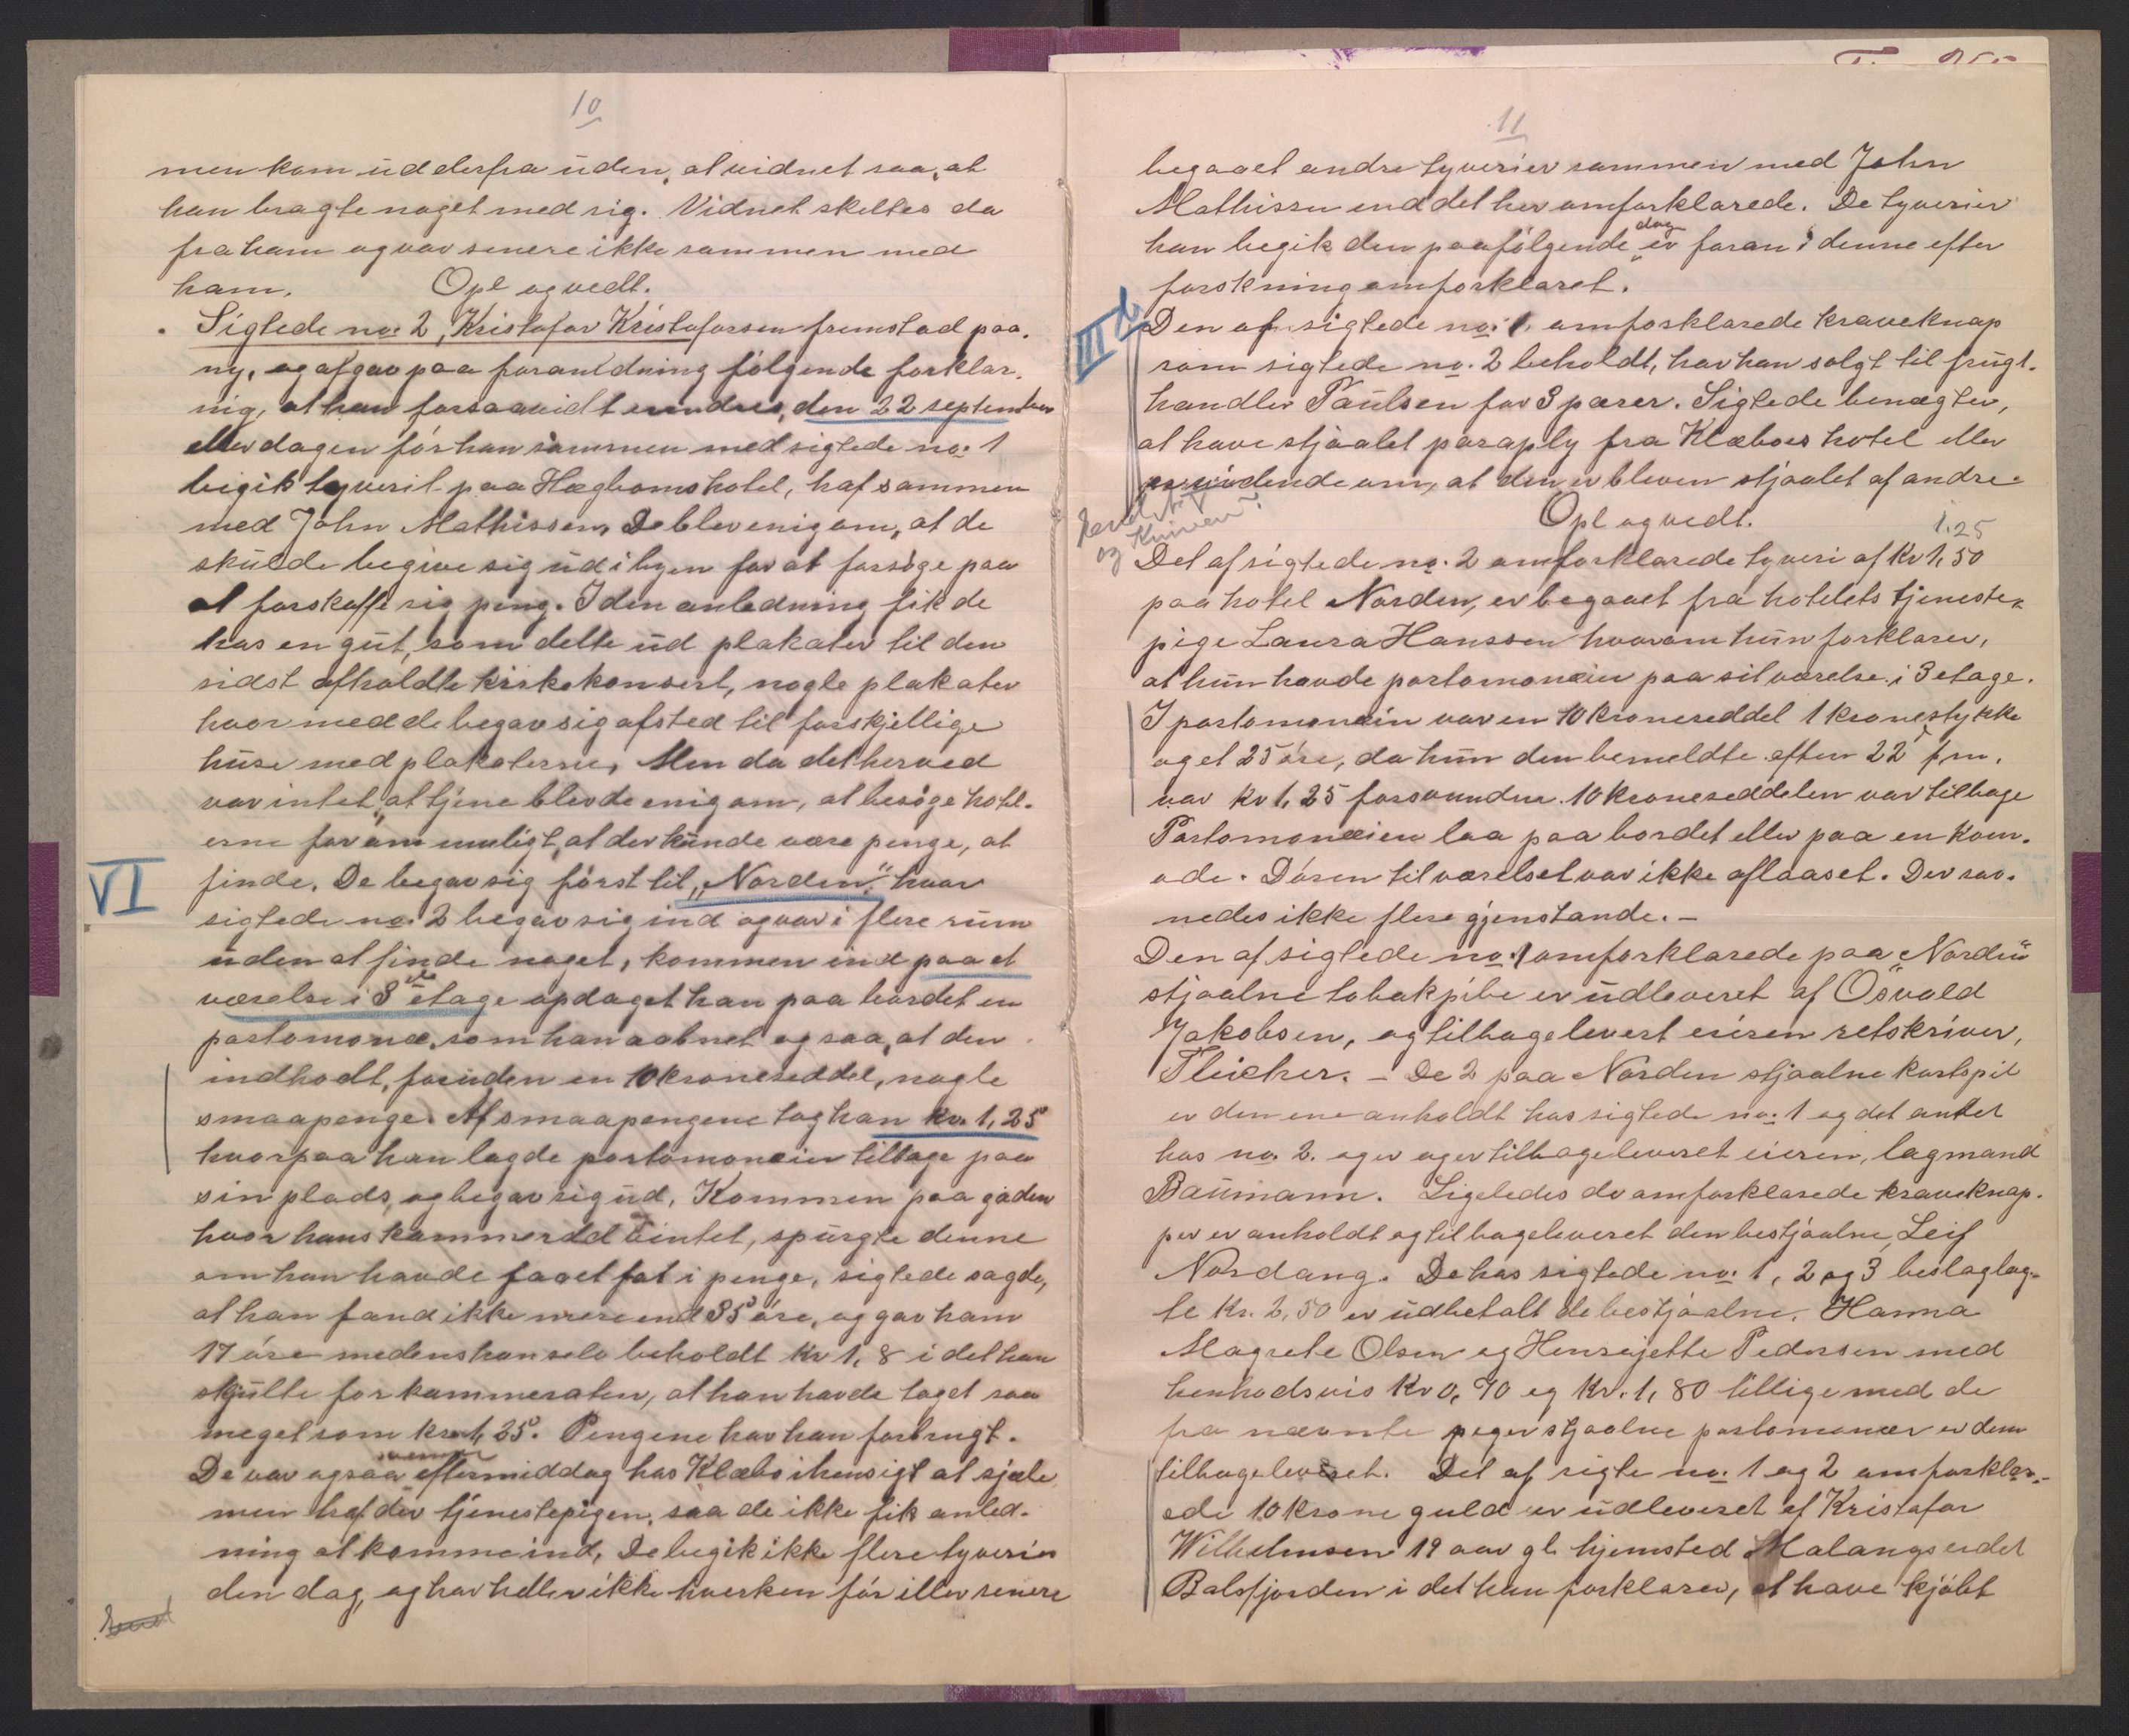 10
men kom ud derfra uden, at vidnet saa, at
han bragte noget med sig. Vidnet skeltes da
fra ham og var senere ikke sammen med
ham. Opl og vedt.
Sigtede no: 2, Kristofor Kristoforsen fremstod paa
ny, og afgav paa foranledning følgende forklar-
nig, at han forsaavidt erindres, den 22 september
eller dagen før han sammen med sigtede no: 1
begik tyverit paa Hægboms hotel, traf sammen
med John Mathissen. De blev enig om, at de
skulde begive sig ud i byen for at forsøge paa
at forskaffe sig peng. I den anledning fik de
hos en gut, som delte ud plakater til den
sidst afholdte kirkekonsert, nogle plakater
hvormed de begav sig afsted til forskjellige
huse med plakaterne. Men da det herved
var intet at tjene blev de enig om, at besøge hotel-
erne for om muligt, at der kunde være penge, at
finde. De begav sig først til „Norden" hvor
VI
sigtede no: 2 begav sig ind og var i flere rum
uden at finde noget, kommen ind paa et
værelse i 3die etage opdaget han paa bordet en
portomonæ, som han aabnet og saa, at den
indhodt, foruden en 10 kroneseddel, nogle
smaapenge. Af smaapengene tog han kr. 1,25
hvorpaa han lagde portomonæien tilbage paa
sin plads, og begav sig ud. Kommen paa gaden
hvor hans kammerad ventet, spurgte denne
om han havde faaet fat i penge, sigtede sagde,
at han fand ikke mere end 35 øre, og gav ham
17 øre medens han selv beholdt kr 1,8 i det han
skjulte for kammeraten, at han havde taget saa
meget som kr 1,25. Pengene har han forbrugt.
De var ogsaa samme eftermiddag hos Klæbo i hensigt at sjæle
men traf der tjenestepigen, saa de ikke fik anled-
ning at komme ind. De begik ikke flere tyverier
den dag, og har heller ikke hverken før eller senere
11
begaaet andre tyverier sammen med John
Mathissen end det her omforklarede. De tyverier
han begik den paafølgende dag er foran i denne efter
forskning omforklaret.
III d
Den af sigtede no: 1 omforklarede kraveknap
som sigtede no. 2 beholdt, har han solgt til frugt-
handler Paulsen for 3 pærer. Sigtede benægter,
at have stjaalet paraply fra Klæboes hotel eller
er vidende om, at den er bleven stjaalet af andre.
og Kniven?
Opl og vedt.
1.25
Det af sigtede no. 2 omforklarede tyveri af Kr 1,50
paa hotel Norden, er begaaet fra hotelets tjeneste-
pige Laura Hanssen hvorom hun forklarer,
at hun havde portomonæien paa sit værelse i 3 etage.
I portomonæin var en 10 kroneseddel 1 kronestykke
og et 25 øre, da hun den bemeldte aften 22 f m.
var kr 1,25 forsvunden. 10 kroneseddelen var tilbage
Portomonæien laa paa bordet eller paa en kom-
ode. Døren til værelset var ikke aflaaset. Der sav-
nedes ikke flere gjenstande. –
Den af sigtede no. 1 omforklarede paa „Norden"
stjaalne tobakpibe er udleveret af Osvald
Jakobsen, og tilbagelevert eieren retskriver,
Fleicher. – De 2 paa Norden stjaalne kortspil
er den ene anholdt hos sigtede no: 1 og det andet
hos no. 2. og er og er tilbageleveret eieren, lagmand
Baumann. Ligeledes de omforklarede kraveknap-
per er anholdt og tilbageleveret den bestjaalne, Leif
Nordang. De hos sigtede no: 1, 2 og 3 beslaglag-
te Kr. 2,50 er udbetalt de bestjaalne, Hanna
Magrete Olsen og Hensejette Pedersen med
henhodsvis Kr 0,70 og Kr. 1,80 tillige med de
fra nævnte peger stjaalne portomonær er dem
tilbageleveret. Det af sigte no: 1 og 2 omforklar-
ede 10 krone guld er udleveret af Kristofor
Wilhelmsen 19 aar gl. hjemsted Malangseidet
Balsfjorden i det han forklarer, at have kjøbt